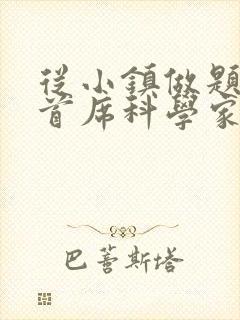 從小鎮做題
首席科學家
巴薈斯塔